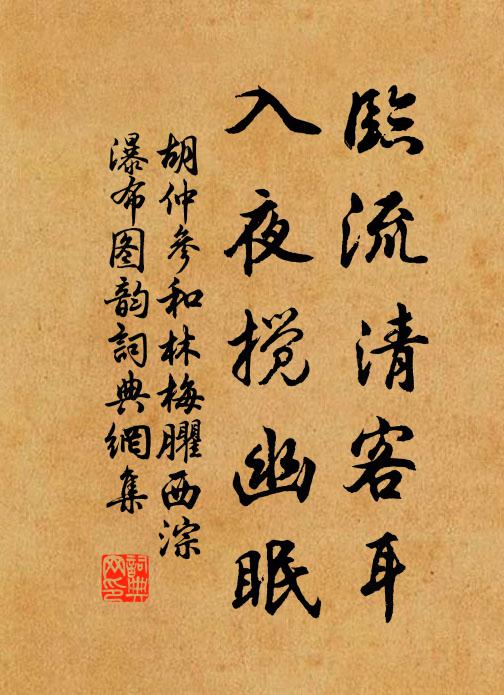 臨流清客耳
入夜搅幽眠
胡仲參和林梅臞西淙
瀑布图韵詞典網集
詞典网印